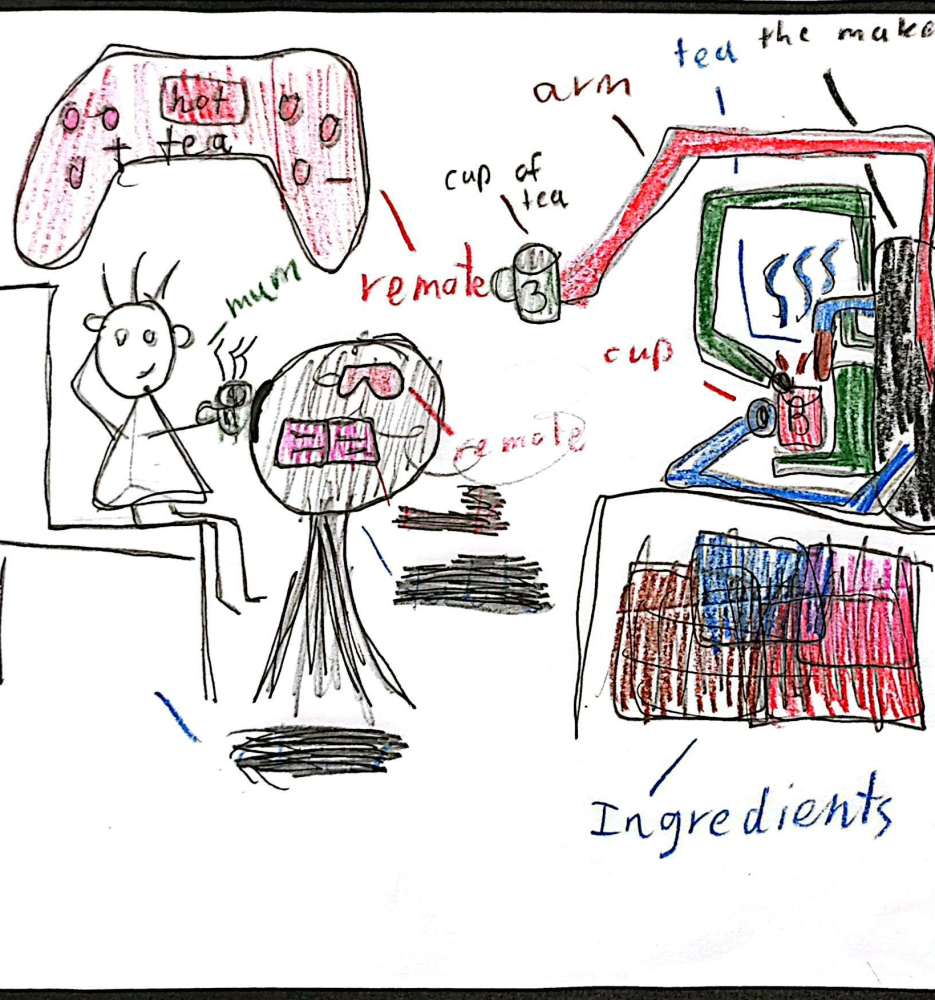 the make
tea
arm
hot
+ tea
-
cup of
tea
remate
3
mum
cup
8
remote
Ingredients